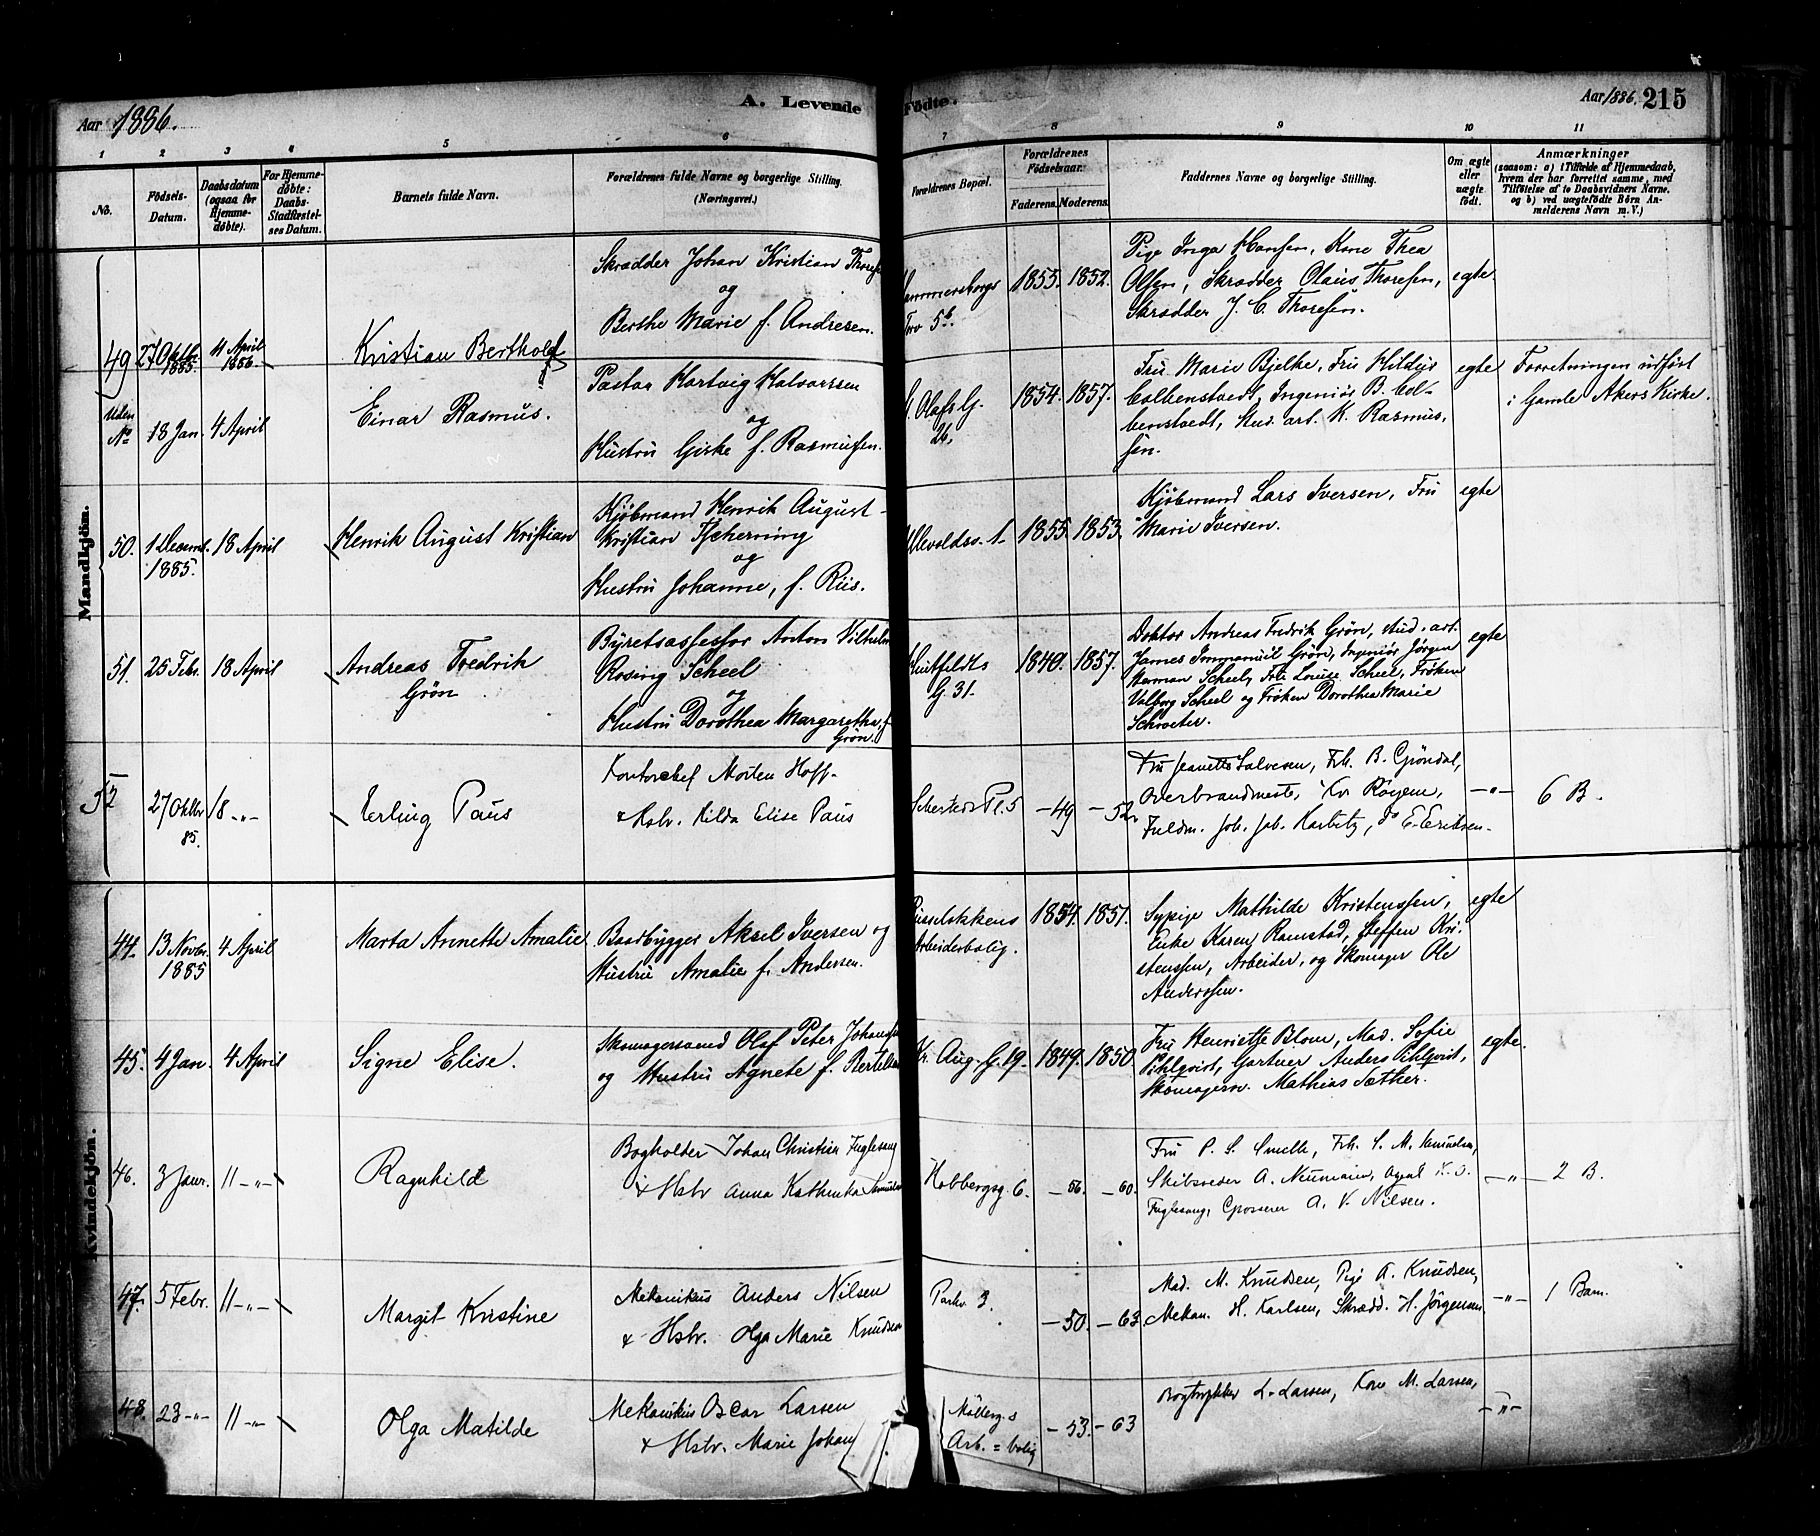 Aar 1886.
A. Levende
Födte.
Aar 1886. 215
1 2 3 4 5 6 7 8 9 10 11
No.
Födsels-
Datum.
Daabsdatum
(ogsaa for
Hjemme-
döbte).
For Hjemme-
döbte:
Daabs-
Stadfæstel-
ses Datum.
Barnets fulde Navn.
Forældrenes fulde Navne og borgerlige Stilling.
(Næringsvei.)
Forældrenes Bopæl.
Forældrenes
Födselsaar.
Faderens. Moderens.
Faddernes Navne og borgerlige Stilling.
Om ægte
eller
uægte
födt.
Anmærkninger
(saasom: a) i Tilfælde af Hjemmedaab,
hvem der har forrettet samme, med
Tilföielse af to Daabsvidners Navne,
og b) ved uægtefödte Börn An-
melderens Navn m. V.)
Mandkjön.
49 27 Oktb. 1885. 4 April 1886.
Kristian Berthold
Skrædder Johan Kristian Thoresen
og
Berthe Marie f. Andresen.
5b.
1853. 1852.
Pige Inga Hansen, Kone Thea
Olsen, Skrædder Olaus Thoresen,
Skrædder J. C. Thoresen.
egte
Uden No 18 Jan. 4 April
Einar Rasmus.
Pastor Hartvig Halvorssen
og
Hustru Giske f. Rasmussen.
St. Olafs G.
26.
1854. 1857.
Fru Marie Bjelke, Fru Hildur
Colbenstvedt, Ingeniör B. Col-
benstvedt, Stud. art. K. Rasmus-
sen.
egte
Forretningen udført
i Gamle Akers Kirke.
50. 1 Decemb. 1885. 18 April
Henrik August Kristian
Kjøbmand Henrik August
Kristian Tscherning
og
Hustru Johanne, f. Riis.
Ullevoldsv. 1
1855. 1853.
Kjøbmand Lars Iversen, Fru
Marie Iversen.
egte
51. 25 Febr. 18 April
Andreas Fredrik
Grøn
Byretsassessor Anton Vilhelm
Rosing Scheel
og
Hustru Dorothea Margaretha, f.
Grøn.
Huitfeldts
G. 31.
1840. 1857.
Doktor Andreas Fredrik Grøn, stud. art.
James Immanuel Grøn, Ingeniør Jørgen
Herman Scheel, Frk. Louise Scheel, Frøken
Valborg Scheel og Frøken Dorothea Marie
Schroeter.
egte
52 27 Oktbr 85. 18 -"-
Erling Paus
Kontorchef Morten Hoff
& Hstr. Hilda Elise Paus
Pl. 5
-49 -52
Fru Jeanette Salvesen, Frk. B. Grøndal,
Overbrandmest. Kr. Røyem,
Fuldm. Joh. Joh. Karbitz, do E. Eriksen.
-"-
6 B.
Kvindekjön.
44. 13 Novbr. 1885 4 April
Marta Annette Amalie
Baadbygger Aksel Iversen og
Hustru Amalie f. Andersen.
Ruseløkkens
Arbeiderbolig.
1854. 1851.
Sypige Mathilde Kristenssen,
Enke Karen Ramstad, Steffen Kri-
stenssen, Arbeider, og Skomager Ole
Anderssen.
egte
45. 4 Jan. 4 April
Signe Elise.
Skomagersvend Olaf Peter Johansen
og Hustru Agnete f. Bertelsen
Kr. Aug. G. 19.
1849. 1850.
Fru Henriette Blom, Mad. Sofie
Pihlqvist, Gartner Anders Pihlqvist,
Skomagersv. Mathias Sæther.
egte.
46. 3 Janr. 11 -"-
Ragnhild
Bogholder Johan Christian Fuglesang
& Hstr Anna Kathinka
Holbergsg. 6.
-56. -60.
Fru P. S. Smelle, Frk. S. M. Knudsen,
Skibsreder A. Neumann, Agent K. O.
Fuglesang, Grosserer A. V. Nilsen.
-"-
2 B.
47. 5 Febr. 11 -"-
Margit Kristine
Mekanikus Anders Nilsen
& Hstr. Olga Marie Knudsen
Parkv. 3.
-50. -63.
Mad. M. Knudsen, Pige A. Knudsen,
Mekan. H. Karlsen, Skrædd. H. Jørgensen
-"-
1 Barn.
48. 23 -"- 11 -"-
Olga Matilde
Mekanikus Oscar Larsen
& Hstr. Marie Johan
Mölleg. s
Arb. = bolig
-53. -63
Bogtrykker L. Larsen, Kone M. Larsen,
-"-